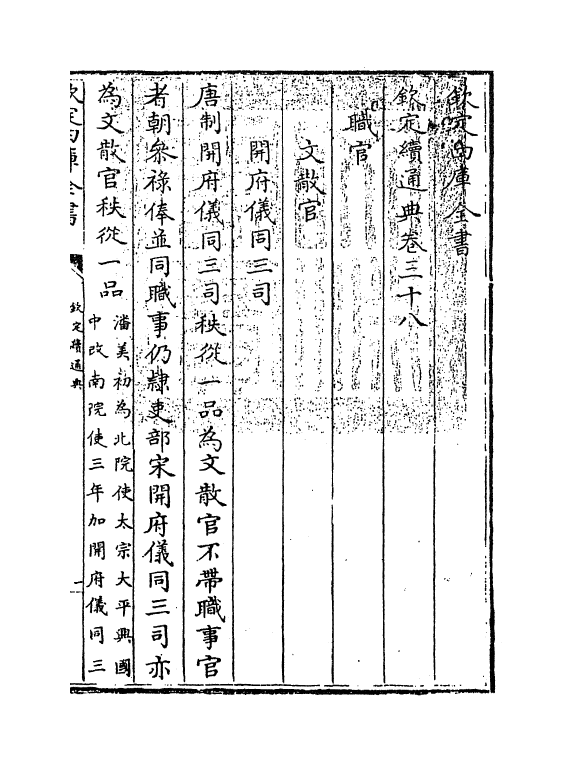 欽定四庫全書
欽定續通典卷三十八
職官
文散官
開府儀同三司
唐制開府儀同三司秩從一品為文散官不帶職事官
者朝參祿俸並同職事仍隷吏部宋開府儀同三司亦
為文散官秩從一品
潘美初為北院使太宗太平興國
中改南院使三年加開府儀同三
欽定四庫全書
欽定續通典
一